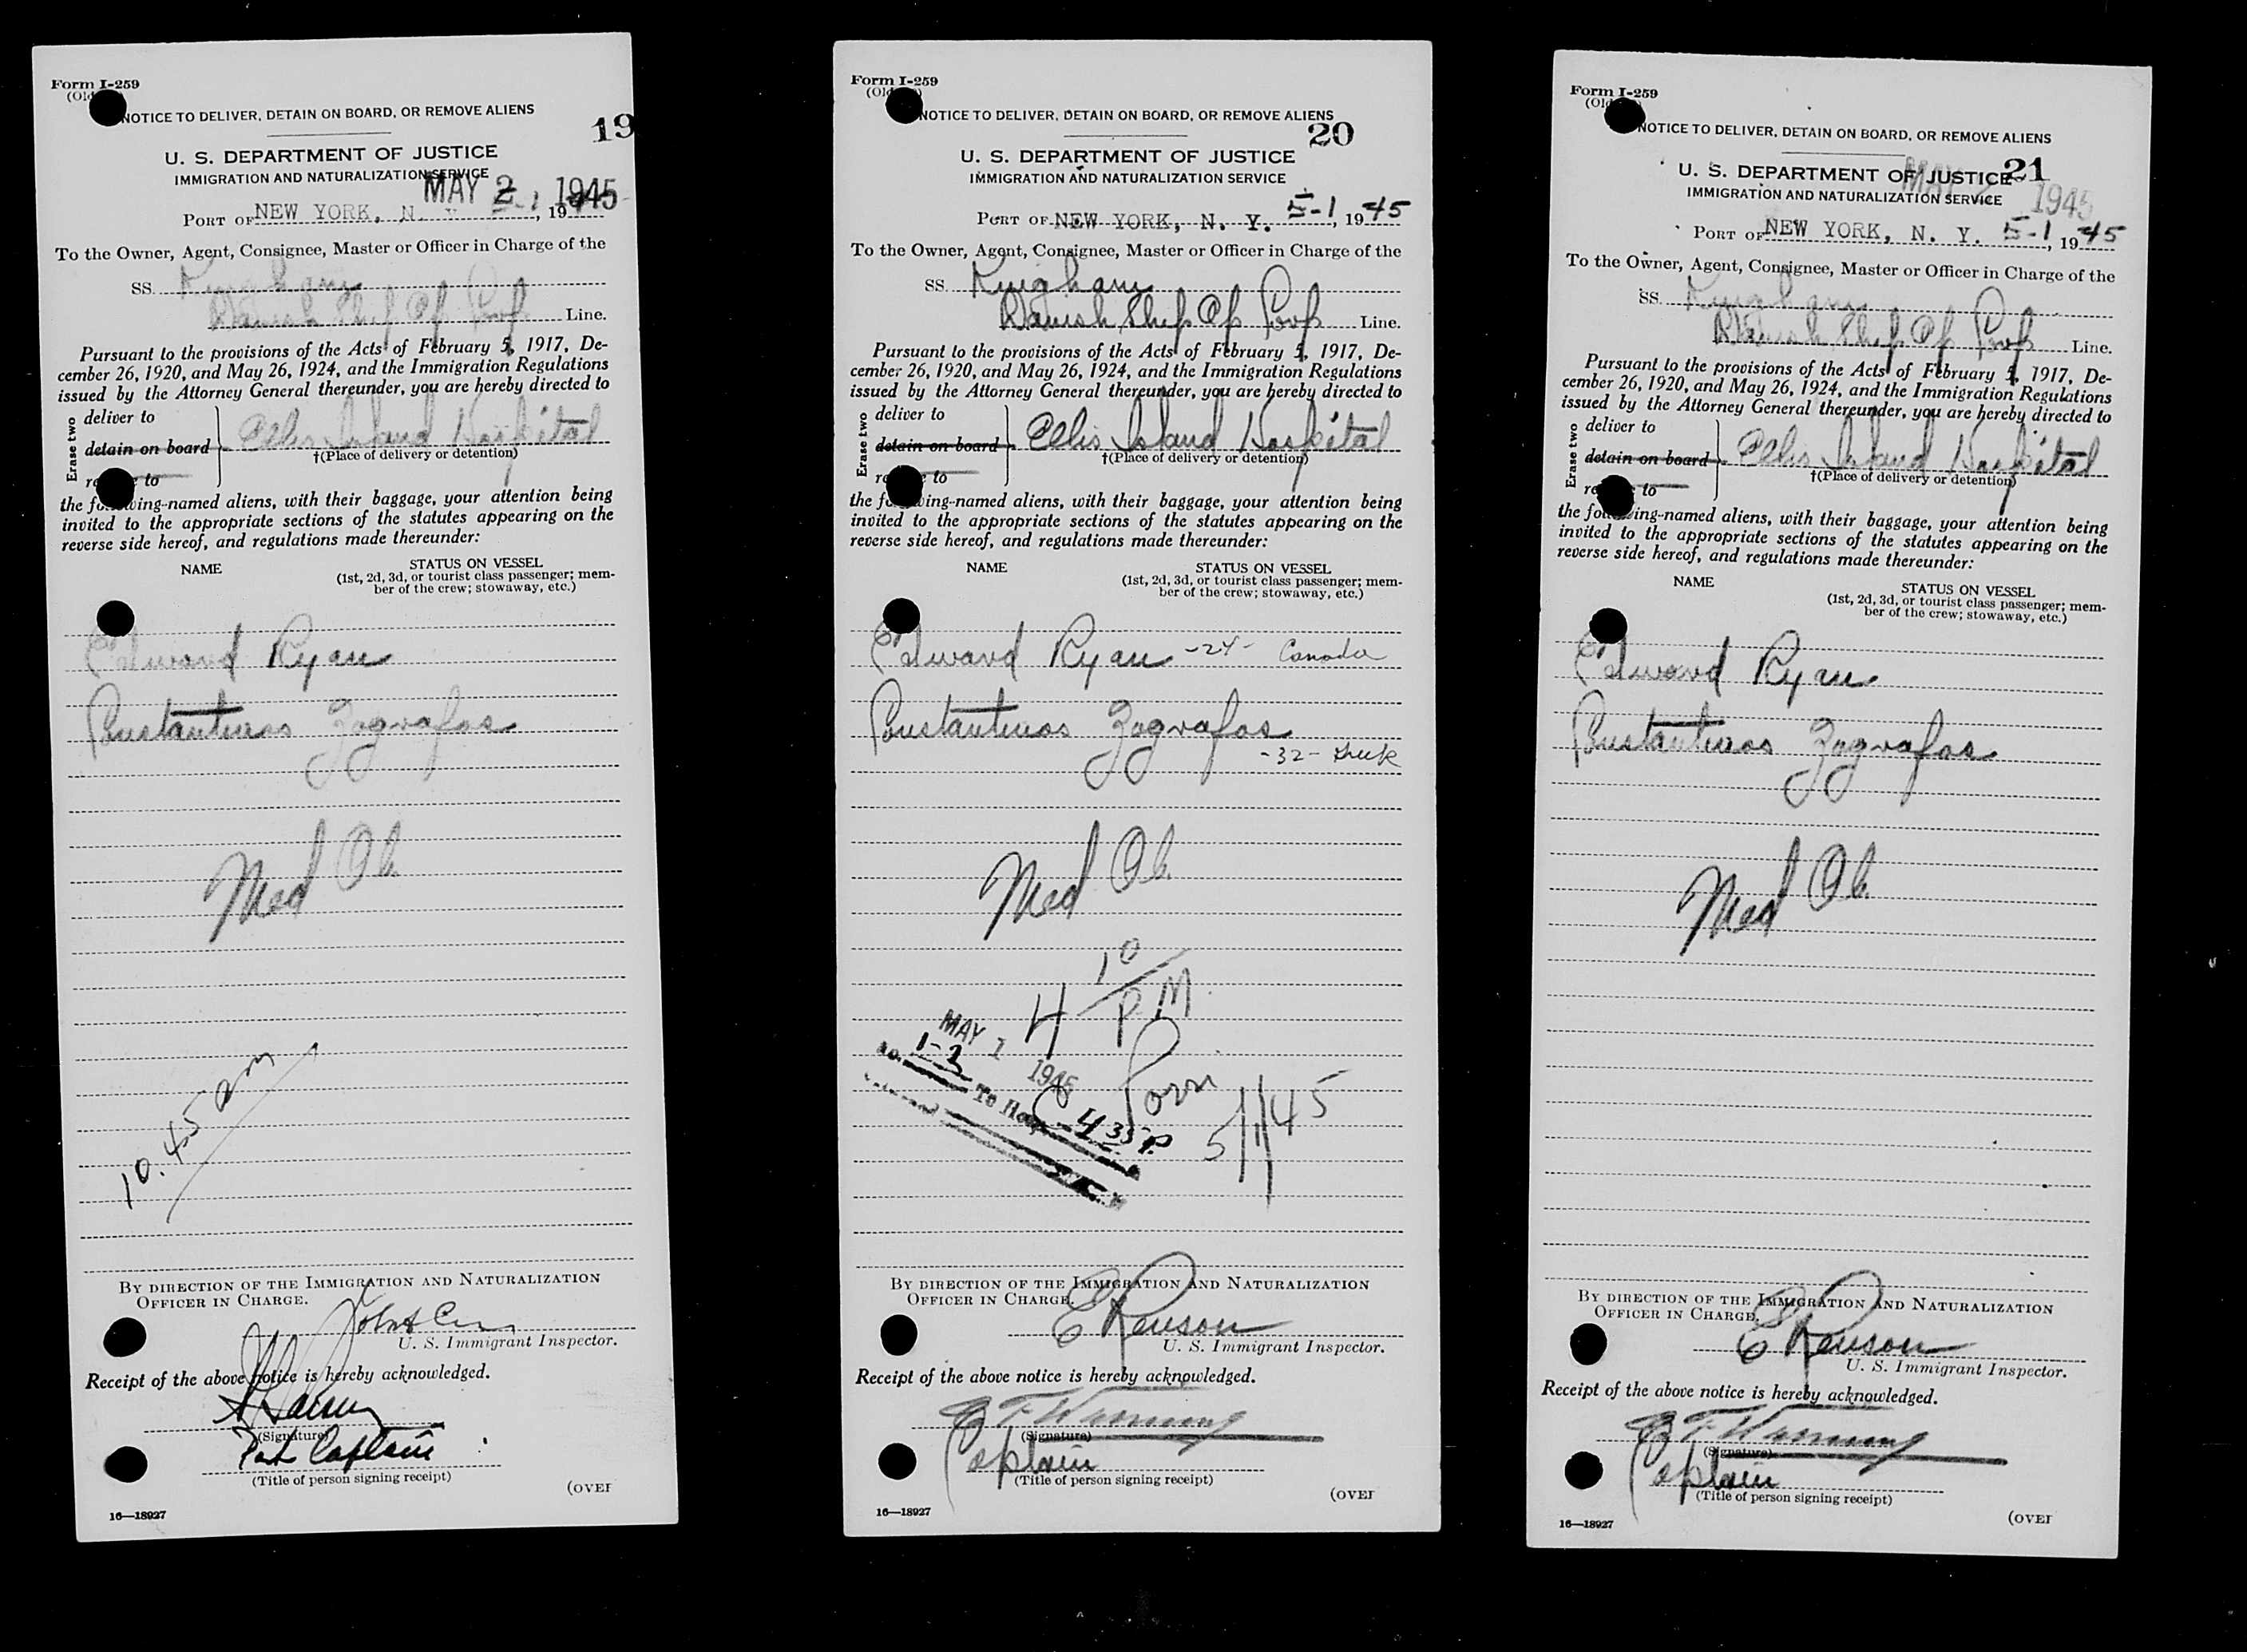 Form I-259
NOTICE TO DELIVER, DETAIN ON BOARD, OR REMOVE ALIENS
19
U. S. DEPARTMENT OF JUSTICE
IMMIGRATION AND NATURALIZATION SERVICE
MAY 2 1945
PORT OF NEW YORK, N. Y. 5-1, 1945
To the Owner, Agent, Consignee, Master or Officer in Charge of the
SS.
Danish Ship Op Line.
Pursuant to the provisions of the Acts of February 5, 1917, De-
cember 26, 1920, and May 26, 1924, and the Immigration Regulations
issued by the Attorney General thereunder, you are hereby directed to
Erase two
deliver to
detain on board Ellis Island Hospital
†(Place of delivery or detention)
to
the following-named aliens, with their baggage, your attention being
invited to the appropriate sections of the statutes appearing on the
reverse side hereof, and regulations made thereunder:
NAME
STATUS ON VESSEL
(1st, 2d, 3d, or tourist class passenger; mem-
ber of the crew; stowaway, etc.)
Edward Ryan
Constantinos Zografos
Med Ob
10.45 am
BY DIRECTION OF THE IMMIGRATION AND NATURALIZATION
OFFICER IN CHARGE.
U. S. Immigrant Inspector.
Receipt of the above notice is hereby acknowledged.
(Signature)
Port Captain
(Title of person signing receipt)
(OVER
16—18927
Form I-259
NOTICE TO DELIVER, DETAIN ON BOARD, OR REMOVE ALIENS
20
U. S. DEPARTMENT OF JUSTICE
IMMIGRATION AND NATURALIZATION SERVICE
PORT OF NEW YORK, N. Y. 5-1, 1945
To the Owner, Agent, Consignee, Master or Officer in Charge of the
SS.
Danish Ship Op Line.
Pursuant to the provisions of the Acts of February 5, 1917, De-
cember 26, 1920, and May 26, 1924, and the Immigration Regulations
issued by the Attorney General thereunder, you are hereby directed to
Erase two
deliver to
detain on board Ellis Island Hospital
†(Place of delivery or detention)
to
the following-named aliens, with their baggage, your attention being
invited to the appropriate sections of the statutes appearing on the
reverse side hereof, and regulations made thereunder:
NAME
STATUS ON VESSEL
(1st, 2d, 3d, or tourist class passenger; mem-
ber of the crew; stowaway, etc.)
Edward Ryan -24- Canada
Constantinos Zografos
-32- Greek
Med Ob
4 10 PM
MAY 1 1945
1-2
To Hosp 4 35 P
5/1/45
BY DIRECTION OF THE IMMIGRATION AND NATURALIZATION
OFFICER IN CHARGE.
U. S. Immigrant Inspector.
Receipt of the above notice is hereby acknowledged.
(Signature)
Captain
(Title of person signing receipt)
(OVER
16—18927
Form I-259
NOTICE TO DELIVER, DETAIN ON BOARD, OR REMOVE ALIENS
21
U. S. DEPARTMENT OF JUSTICE
MAY 2 1945
IMMIGRATION AND NATURALIZATION SERVICE
PORT OF NEW YORK, N. Y. 5-1, 1945
To the Owner, Agent, Consignee, Master or Officer in Charge of the
SS.
Danish Ship Op Line.
Pursuant to the provisions of the Acts of February 5, 1917, De-
cember 26, 1920, and May 26, 1924, and the Immigration Regulations
issued by the Attorney General thereunder, you are hereby directed to
Erase two
deliver to
detain on board Ellis Island Hospital
†(Place of delivery or detention)
to
the following-named aliens, with their baggage, your attention being
invited to the appropriate sections of the statutes appearing on the
reverse side hereof, and regulations made thereunder:
NAME
STATUS ON VESSEL
(1st, 2d, 3d, or tourist class passenger; mem-
ber of the crew; stowaway, etc.)
Edward Ryan
Constantinos Zografos
Med Ob
BY DIRECTION OF THE IMMIGRATION AND NATURALIZATION
OFFICER IN CHARGE.
U. S. Immigrant Inspector.
Receipt of the above notice is hereby acknowledged.
(Signature)
Captain
(Title of person signing receipt)
(OVER
16—18927